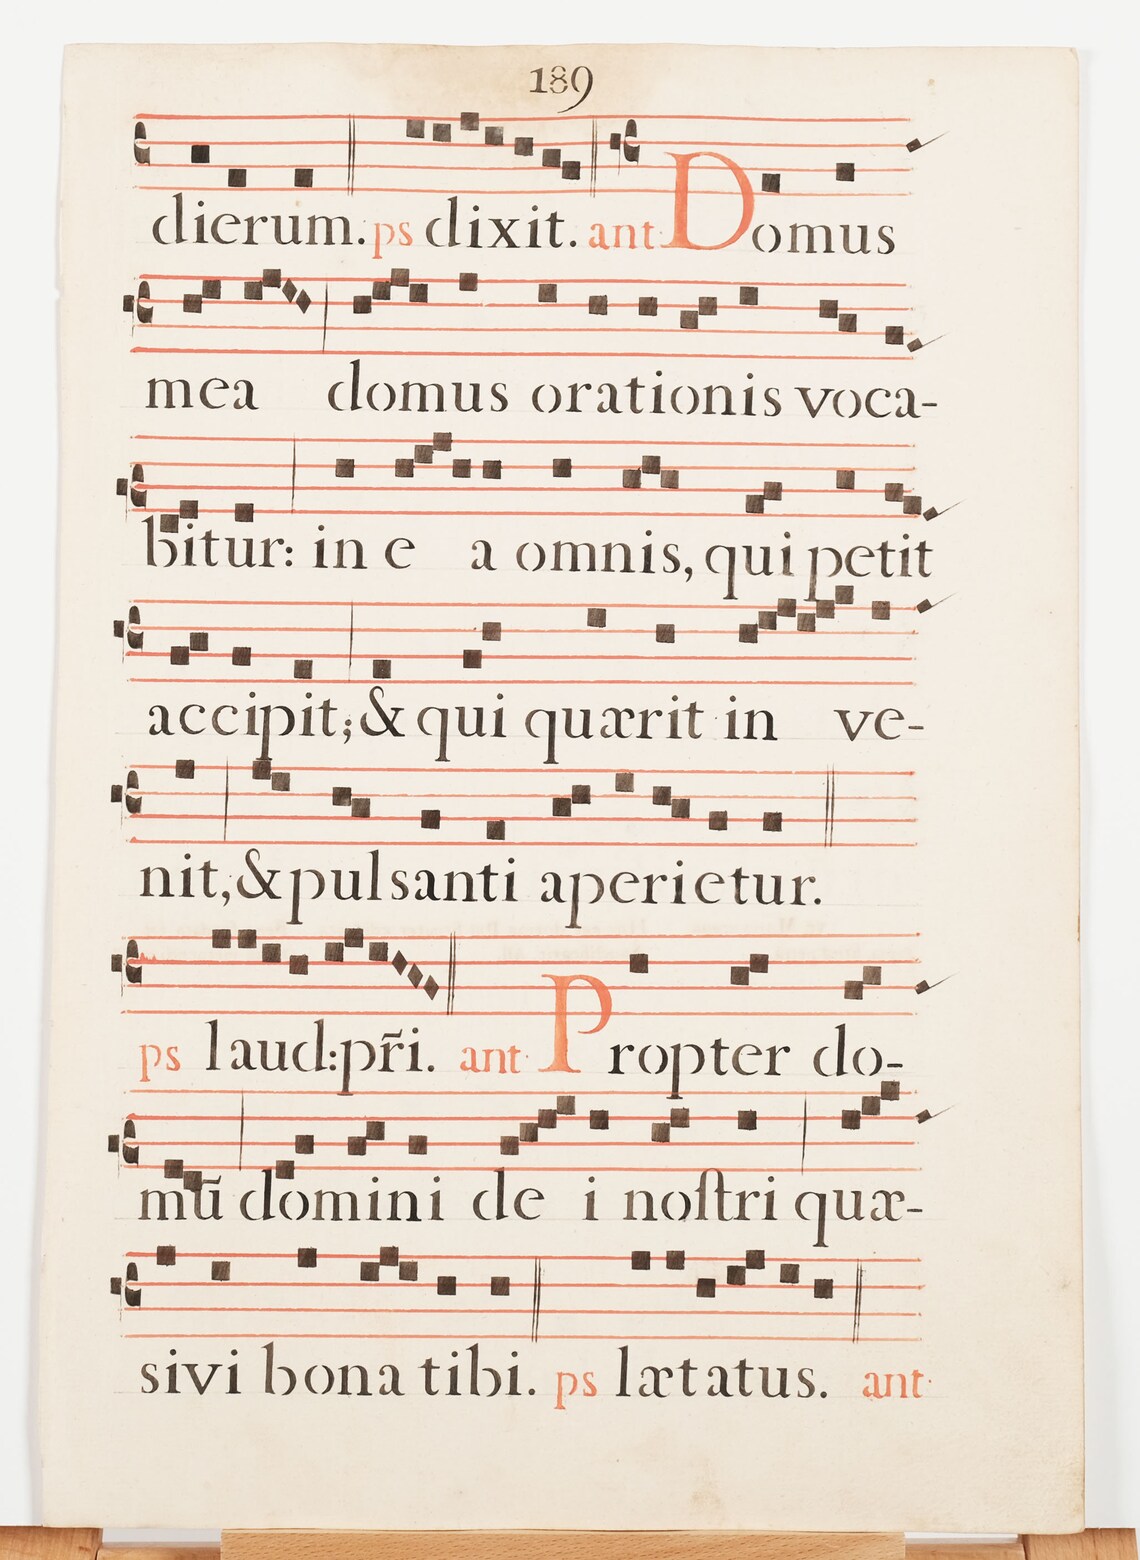 189
dierum. ps dixit. ant: Domus
mea domus orationis voca-
bitur: in e a omnis, qui petit
accipit; & qui quærit in ve-
nit, & pulsanti aperietur.
ps laud: pr̃i. ant Propter do-
mũ domini de i noſtri quæ-
sivi bona tibi. ps lætatus. ant